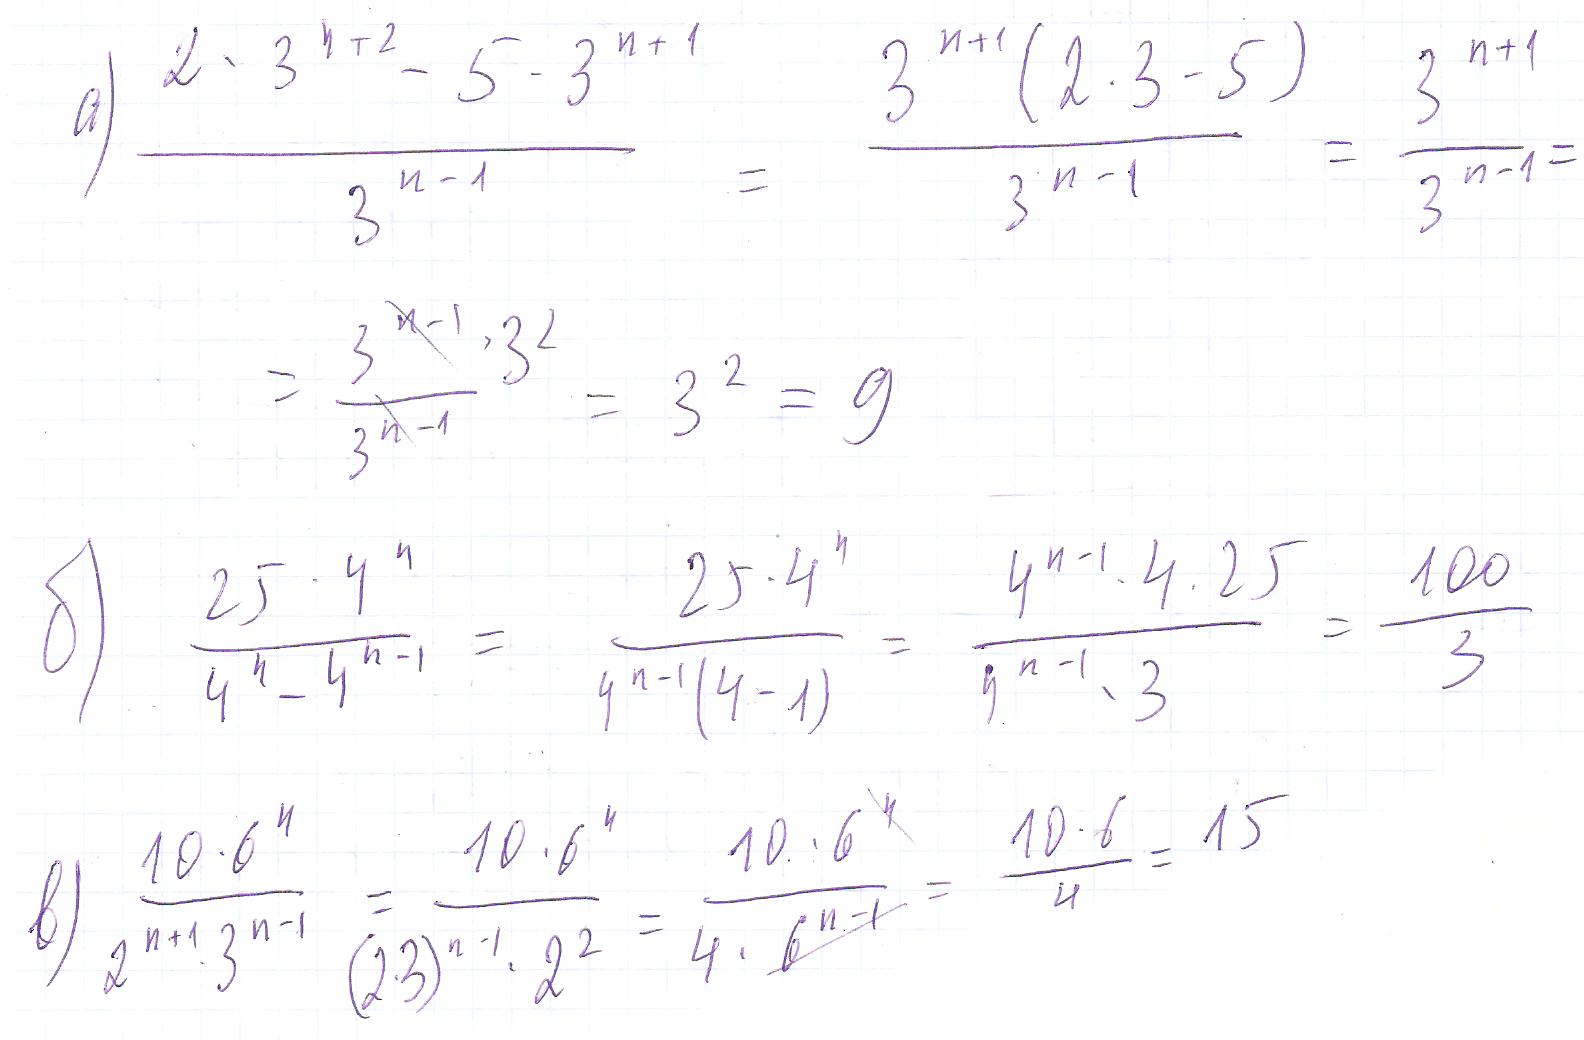 а) (2 · 3^(n+2) - 5 · 3^(n+1)) / 3^(n-1) = 3^(n+1) (2 · 3 - 5) / 3^(n-1) = 3^(n+1) / 3^(n-1) =
= 3^(n-1) · 3^2 / 3^(n-1) = 3^2 = 9
б) 25 · 4^n / (4^n - 4^(n-1)) = 25 · 4^n / (4^(n-1) (4 - 1)) = 4^(n-1) · 4 · 25 / (4^(n-1) · 3) = 100 / 3
в) 10 · 6^n / (2^(n+1) · 3^(n-1)) = 10 · 6^n / ((2·3)^(n-1) · 2^2) = 10 · 6^n / (4 · 6^(n-1)) = 10 · 6 / 4 = 15